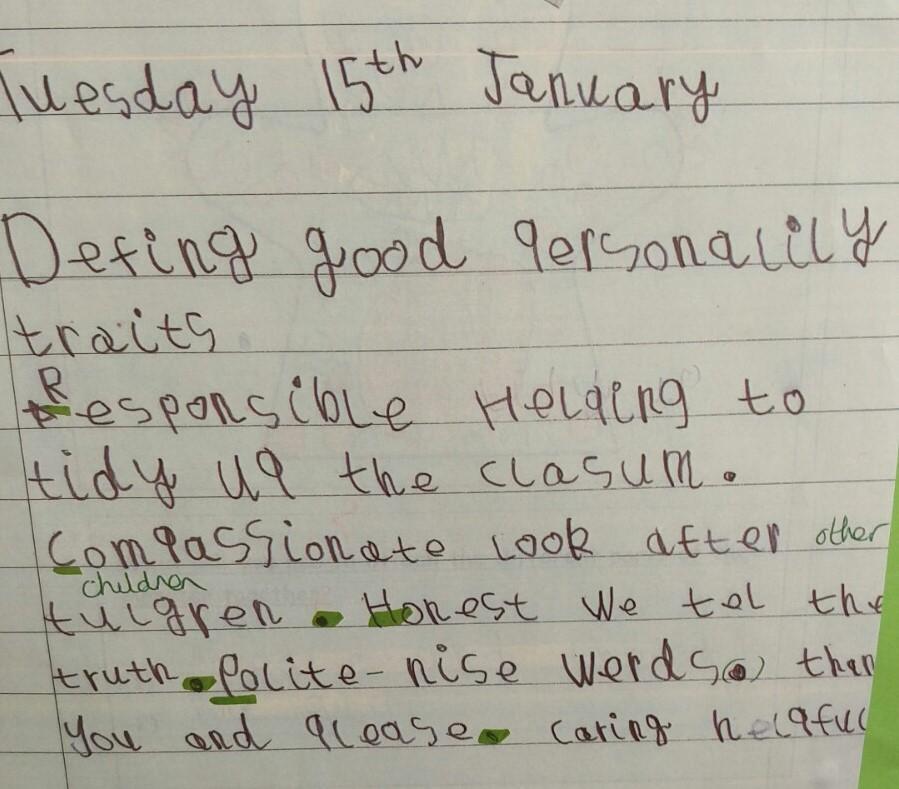 Tuesday 15th January
Defing good personalily
traits
Responsible Helping to
tidy up the clasum.
Compassionate look after other
children
tulgren. Honest we tel the
truth. Polite- nise werds(.) than
you and please. caring helpful